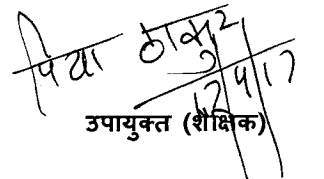 पिया ठाकुर
17/4/17
उपायुक्त (शैक्षिक)